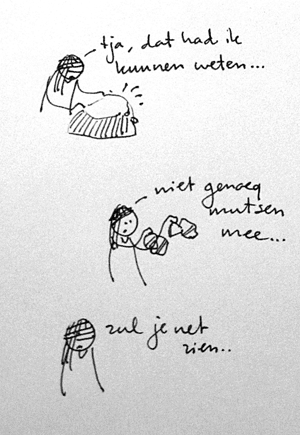 tja, dat had ik
kunnen weten...
niet genoeg
mutsen
mee...
zul je net
zien..